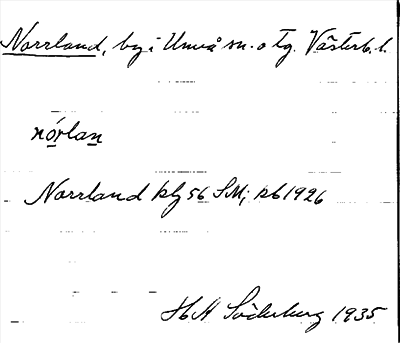 Norrland, by i Umeå sn. o tg. Västerb. l.
nórlan
Norrland kbl 56 SM; kb 1926
H A Söderberg 1935